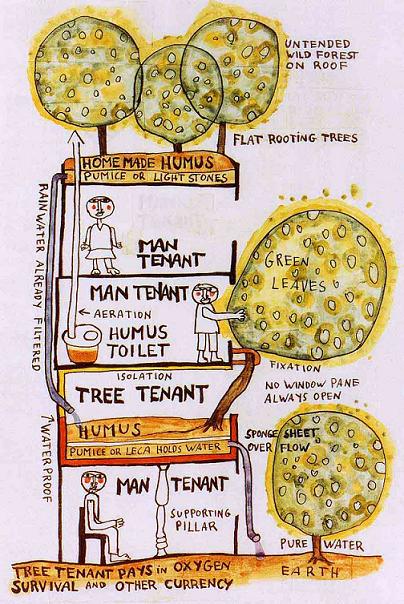 UNTENDED
WILD FOREST
ON ROOF
FLAT ROOTING TREES
HOME MADE HUMUS
PUMICE OR LIGHT STONES
RAINWATER ALREADY FILTERED
MAN
TENANT
GREEN
LEAVES
MAN TENANT
← AERATION
HUMUS
TOILET
FIXATION
ISOLATION
NO WINDOW PANE
ALWAYS OPEN
TREE TENANT
HUMUS
SPONGE SHEET
OVER FLOW
PUMICE OR LECA HOLDS WATER
↑ WATERPROOF
MAN TENANT
SUPPORTING
PILLAR
PURE WATER
EARTH
TREE TENANT PAYS IN OXYGEN
SURVIVAL AND OTHER CURRENCY